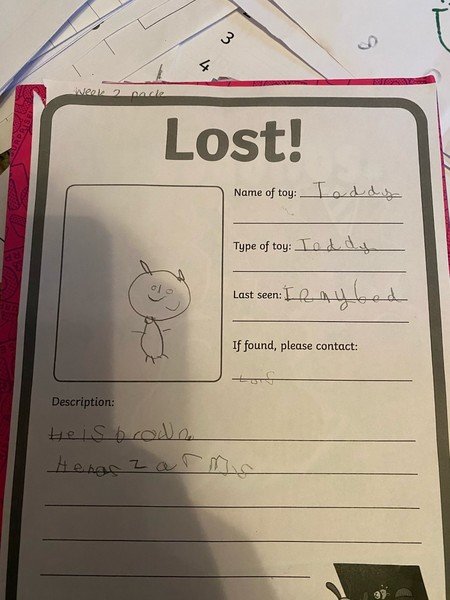 3
4
Week 2 pack
Lost!
Name of toy: Teddy
Type of toy: Teddy
Last seen: In my bed
If found, please contact:
Lois
Description:
He is brown
He has 2 arms